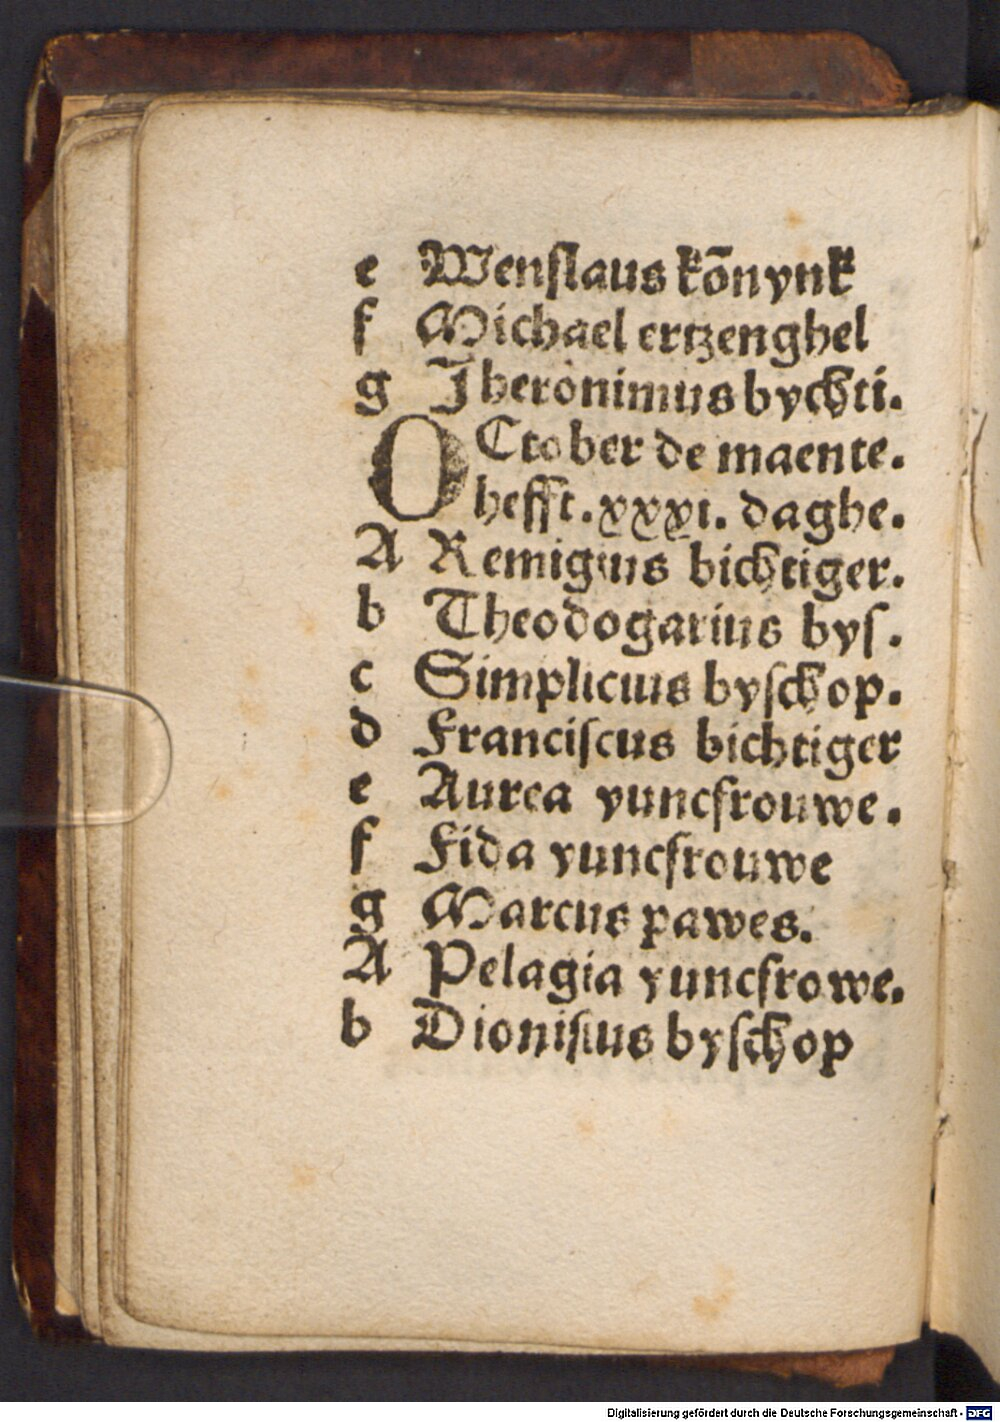 e Wenſlaus kōnynk
f Michael ertzenghel
g Jheronimus bychti.
OCtober de maente.
hefft. xxxi. daghe.
A Remigius bichtiger.
b Theodogarius byſ.
c Simplicius byſchop.
d Franciſcus bichtiger
e Aurea yuncfrouwe.
f Fida yuncfrouwe
g Marcus pawes.
A Pelagia yuncfrowe.
b Dioniſius byſchop
Digitalisierung gefördert durch die Deutsche Forschungsgemeinschaft - DFG